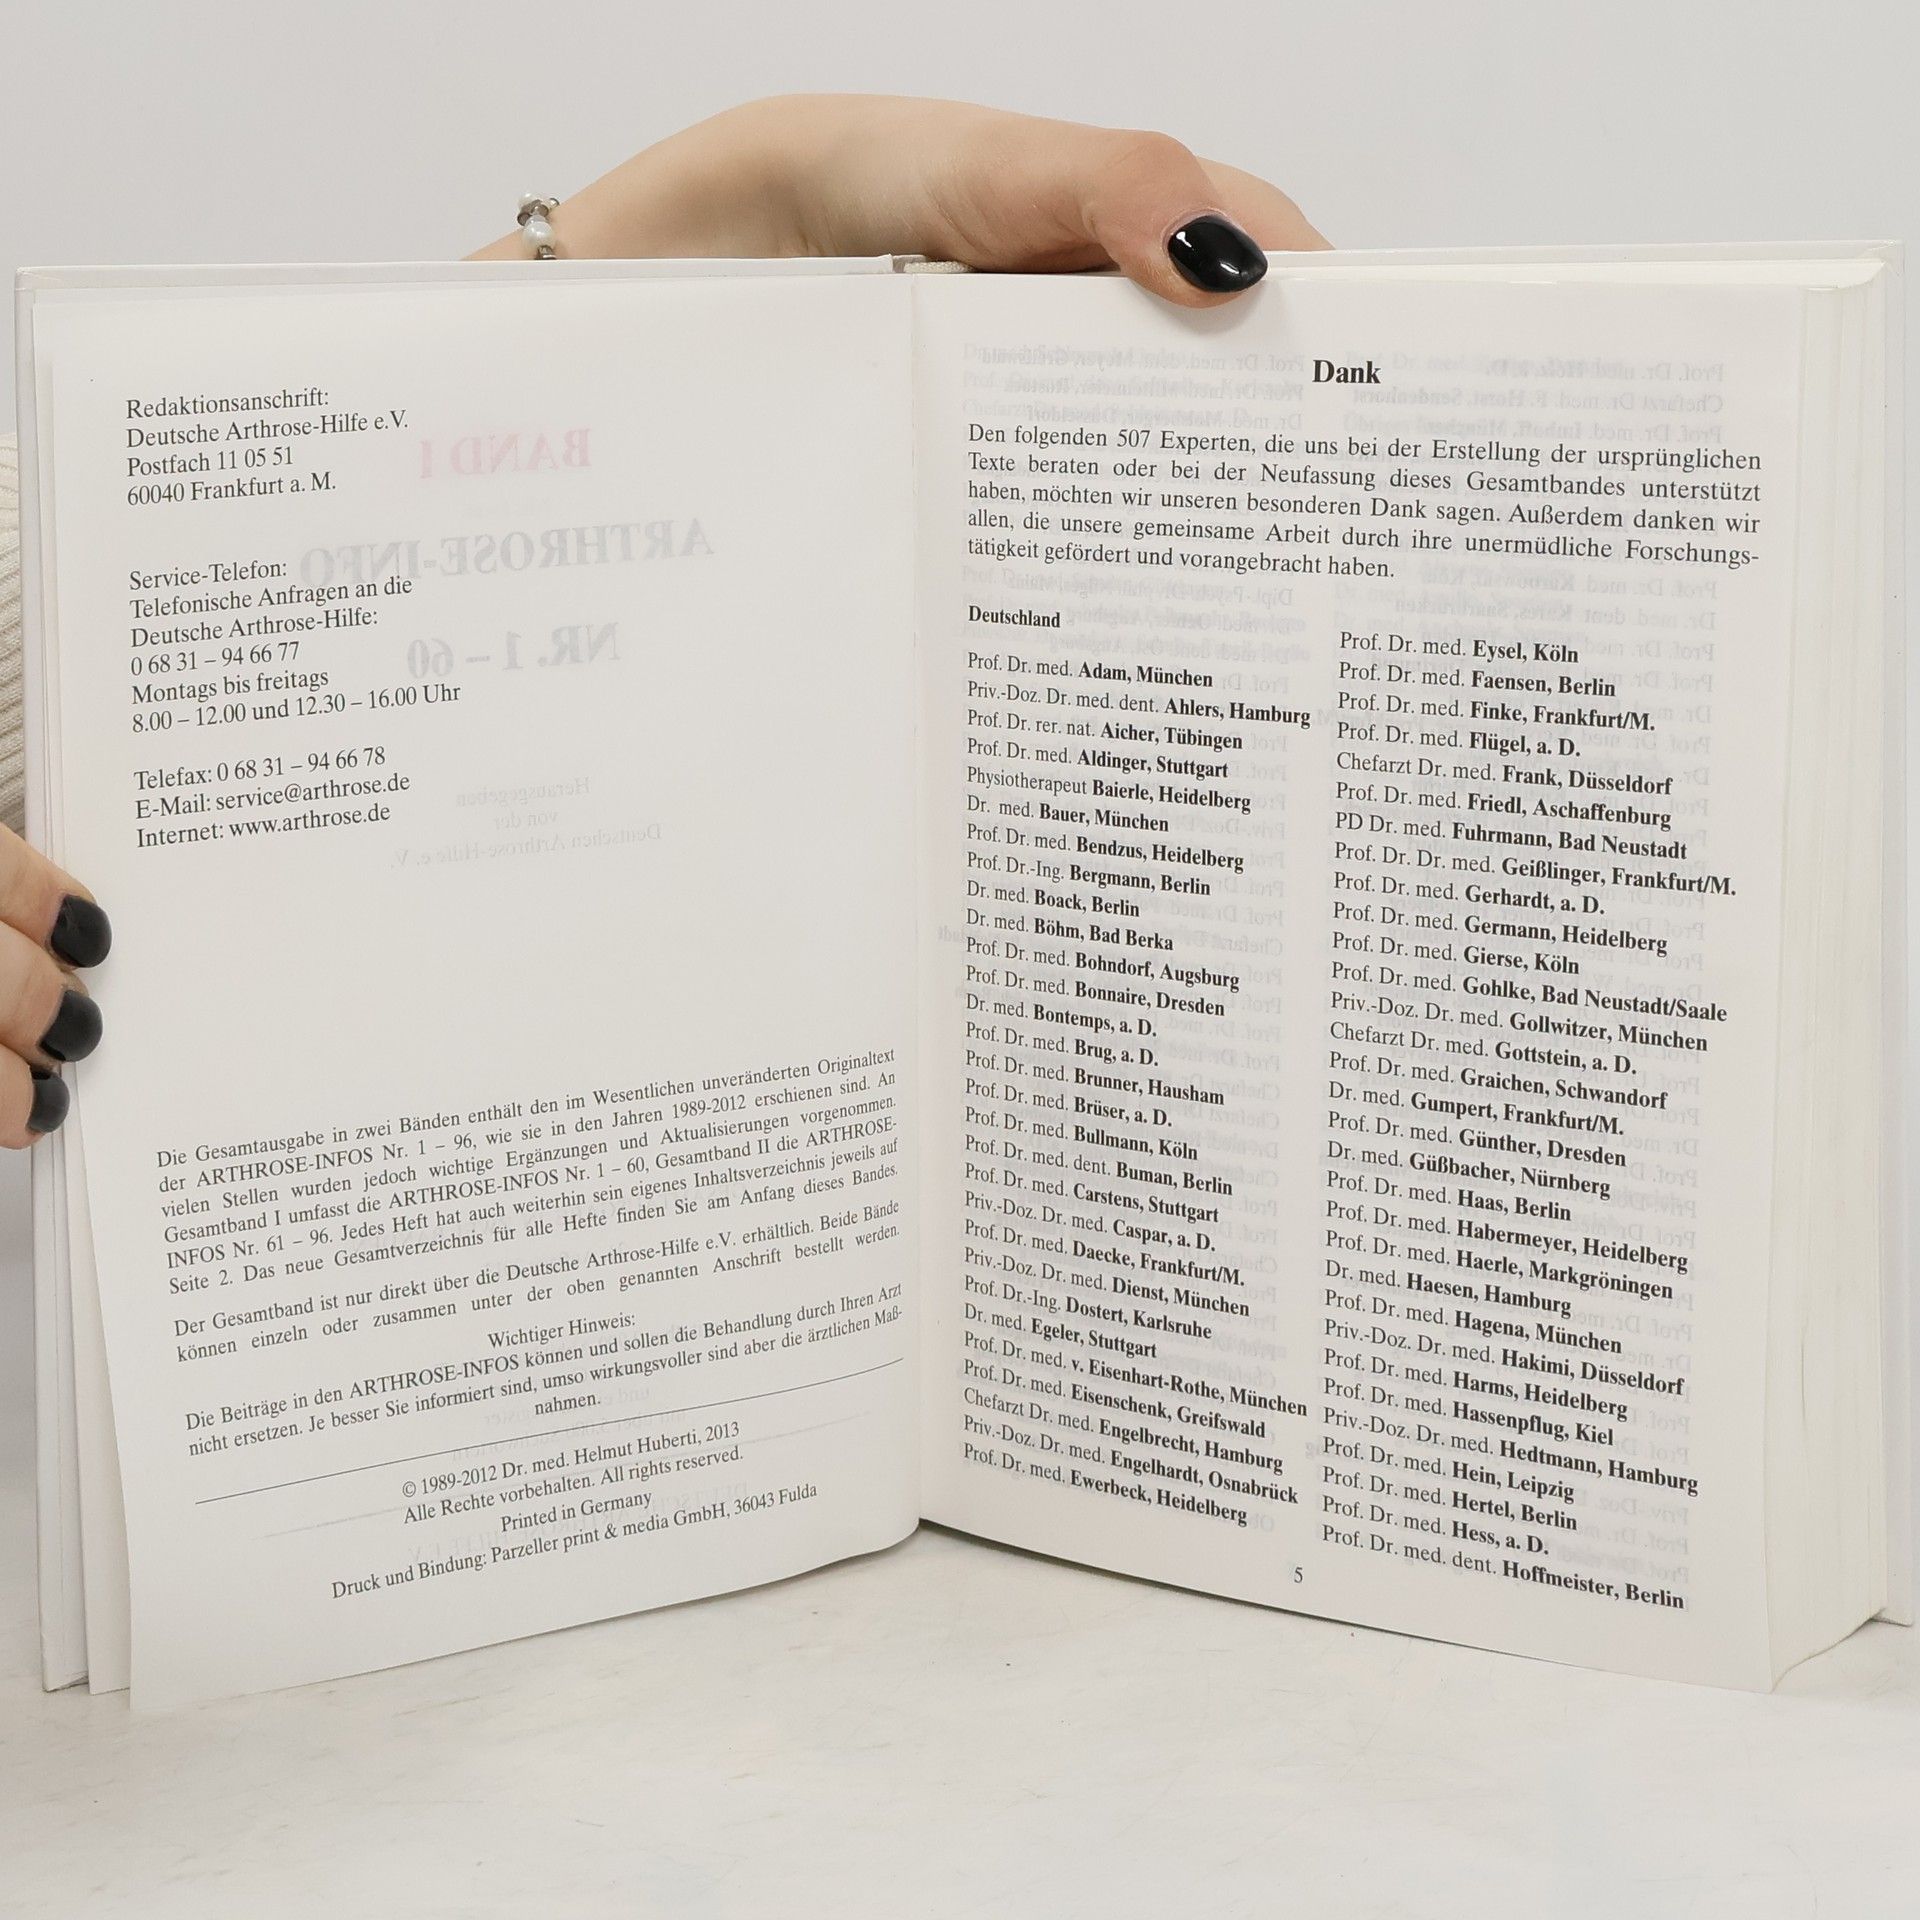 Redaktionsanschrift:
Deutsche Arthrose-Hilfe e.V.
Postfach 11 05 51
60040 Frankfurt a. M.
Service-Telefon:
Telefonische Anfragen an die
Deutsche Arthrose-Hilfe:
0 68 31 – 94 66 77
Montags bis freitags
8.00 – 12.00 und 12.30 – 16.00 Uhr
Telefax: 0 68 31 – 94 66 78
E-Mail: service@arthrose.de
Internet: www.arthrose.de
Die Gesamtausgabe in zwei Bänden enthält den im Wesentlichen unveränderten Originaltext
der ARTHROSE-INFOS Nr. 1 – 96, wie sie in den Jahren 1989-2012 erschienen sind. An
vielen Stellen wurden jedoch wichtige Ergänzungen und Aktualisierungen vorgenommen.
Gesamtband I umfasst die ARTHROSE-INFOS Nr. 1 – 60, Gesamtband II die ARTHROSE-
INFOS Nr. 61 – 96. Jedes Heft hat auch weiterhin sein eigenes Inhaltsverzeichnis jeweils auf
Seite 2. Das neue Gesamtverzeichnis für alle Hefte finden Sie am Anfang dieses Bandes.
Der Gesamtband ist nur direkt über die Deutsche Arthrose-Hilfe e.V. erhältlich. Beide Bände
können einzeln oder zusammen unter der oben genannten Anschrift bestellt werden.
Wichtiger Hinweis:
Die Beiträge in den ARTHROSE-INFOS können und sollen die Behandlung durch Ihren Arzt
nicht ersetzen. Je besser Sie informiert sind, umso wirkungsvoller sind aber die ärztlichen Maß-
nahmen.
© 1989-2012 Dr. med. Helmut Huberti, 2013
Alle Rechte vorbehalten. All rights reserved.
Printed in Germany
Druck und Bindung: Parzeller print & media GmbH, 36043 Fulda
Dank
Den folgenden 507 Experten, die uns bei der Erstellung der ursprünglichen
Texte beraten oder bei der Neufassung dieses Gesamtbandes unterstützt
haben, möchten wir unseren besonderen Dank sagen. Außerdem danken wir
allen, die unsere gemeinsame Arbeit durch ihre unermüdliche Forschungs-
tätigkeit gefördert und vorangebracht haben.
Deutschland
Prof. Dr. med. Adam, München
Priv.-Doz. Dr. med. dent. Ahlers, Hamburg
Prof. Dr. rer. nat. Aicher, Tübingen
Prof. Dr. med. Aldinger, Stuttgart
Physiotherapeut Baierle, Heidelberg
Dr. med. Bauer, München
Prof. Dr. med. Bendzus, Heidelberg
Prof. Dr.-Ing. Bergmann, Berlin
Dr. med. Boack, Berlin
Dr. med. Böhm, Bad Berka
Prof. Dr. med. Bohndorf, Augsburg
Prof. Dr. med. Bonnaire, Dresden
Dr. med. Bontemps, a. D.
Prof. Dr. med. Brug, a. D.
Prof. Dr. med. Brunner, Hausham
Prof. Dr. med. Brüser, a. D.
Prof. Dr. med. Bullmann, Köln
Prof. Dr. med. dent. Buman, Berlin
Prof. Dr. med. Carstens, Stuttgart
Priv.-Doz. Dr. med. Caspar, a. D.
Prof. Dr. med. Daecke, Frankfurt/M.
Priv.-Doz. Dr. med. Dienst, München
Prof. Dr.-Ing. Dostert, Karlsruhe
Dr. med. Egeler, Stuttgart
Prof. Dr. med. v. Eisenhart-Rothe, München
Prof. Dr. med. Eisenschenk, Greifswald
Chefarzt Dr. med. Engelbrecht, Hamburg
Priv.-Doz. Dr. med. Engelhardt, Osnabrück
Prof. Dr. med. Ewerbeck, Heidelberg
Prof. Dr. med. Eysel, Köln
Prof. Dr. med. Faensen, Berlin
Prof. Dr. med. Finke, Frankfurt/M.
Prof. Dr. med. Flügel, a. D.
Chefarzt Dr. med. Frank, Düsseldorf
Prof. Dr. med. Friedl, Aschaffenburg
PD Dr. med. Fuhrmann, Bad Neustadt
Prof. Dr. Dr. med. Geißlinger, Frankfurt/M.
Prof. Dr. med. Gerhardt, a. D.
Prof. Dr. med. Germann, Heidelberg
Prof. Dr. med. Gierse, Köln
Prof. Dr. med. Gohlke, Bad Neustadt/Saale
Priv.-Doz. Dr. med. Gollwitzer, München
Chefarzt Dr. med. Gottstein, a. D.
Prof. Dr. med. Graichen, Schwandorf
Dr. med. Gumpert, Frankfurt/M.
Prof. Dr. med. Günther, Dresden
Dr. med. Güßbacher, Nürnberg
Prof. Dr. med. Haas, Berlin
Prof. Dr. med. Habermeyer, Heidelberg
Prof. Dr. med. Haerle, Markgröningen
Dr. med. Haesen, Hamburg
Prof. Dr. med. Hagena, München
Priv.-Doz. Dr. med. Hakimi, Düsseldorf
Prof. Dr. med. Harms, Heidelberg
Prof. Dr. med. Hassenpflug, Kiel
Priv.-Doz. Dr. med. Hedtmann, Hamburg
Prof. Dr. med. Hein, Leipzig
Prof. Dr. med. Hertel, Berlin
Prof. Dr. med. Hess, a. D.
Prof. Dr. med. dent. Hoffmeister, Berlin
5